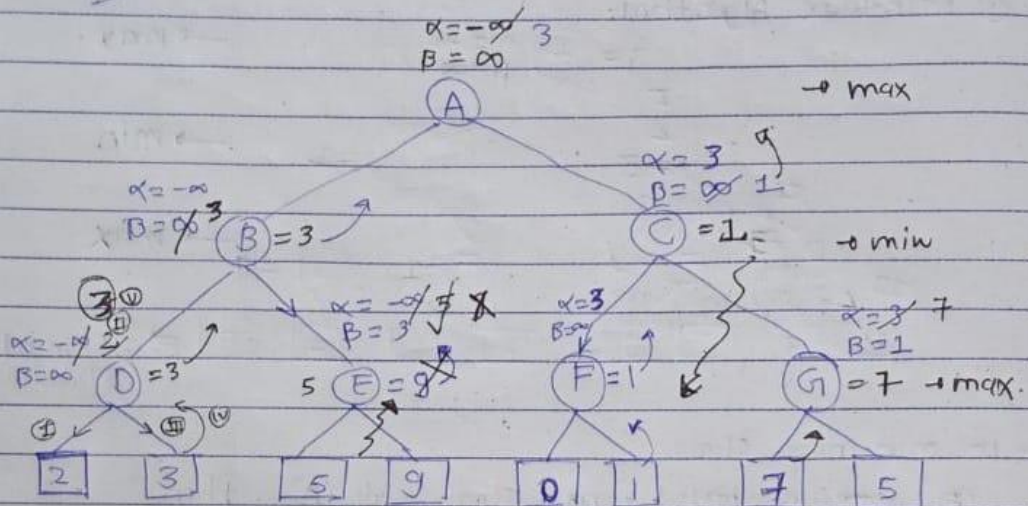 α = -∞ 3
β = ∞
A
→ max
α = 3
β = ∞ 1
α = -∞
β = ∞ 3
B = 3
C = 1
→ min
3 V
II
α = -∞ 2
β = ∞
D = 3
α = -∞ 5
β = 3
5 E = 9
α = 3
β = ∞
F = 1
α = 3 7
β = 1
G = 7 → max.
I III IV
2 3 5 9 0 1 7 5